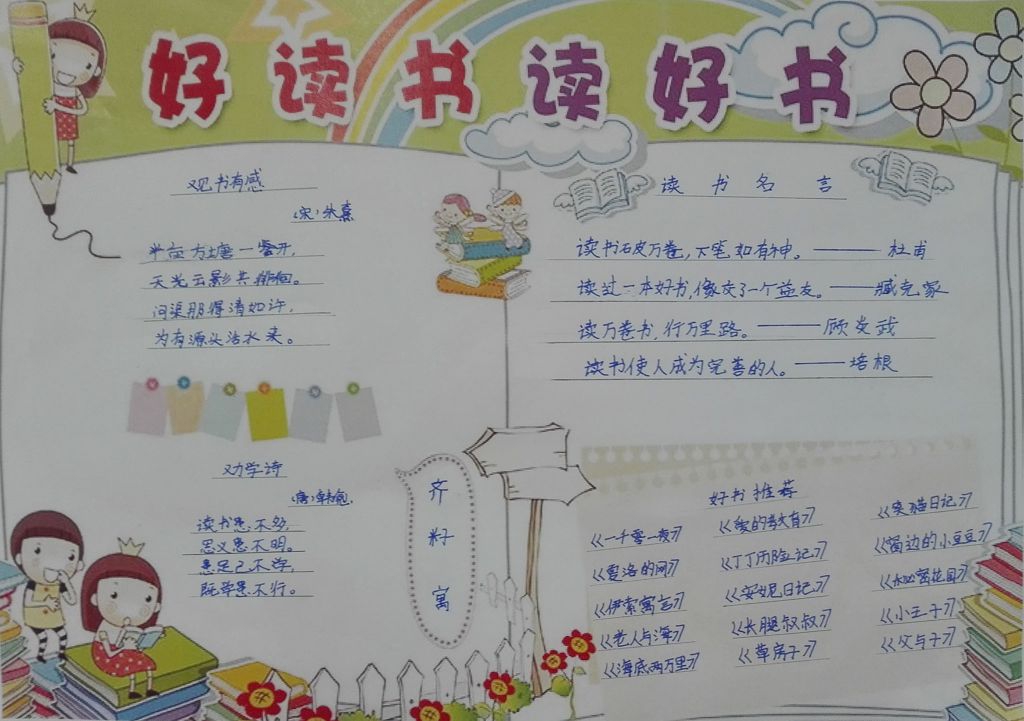 好读书读好书
观书有感
（宋）朱熹
半亩方塘一鉴开，
天光云影共徘徊。
问渠那得清如许，
为有源头活水来。
劝学诗
（唐）韩愈
读书患不多，
思义患不明。
患足己不学，
既学患不行。
齐籽寓
读书名言
读书破万卷，下笔如有神。——杜甫
读过一本好书，像交了一个益友。——臧克家
读万卷书，行万里路。——顾炎武
读书使人成为完善的人。——培根
好书推荐
《一千零一夜》
《夏洛的网》
《伊索寓言》
《老人与海》
《海底两万里》
《爱的教育》
《丁丁历险记》
《安妮日记》
《长腿叔叔》
《草房子》
《笑猫日记》
《窗边的小豆豆》
《秘密花园》
《小王子》
《父与子》